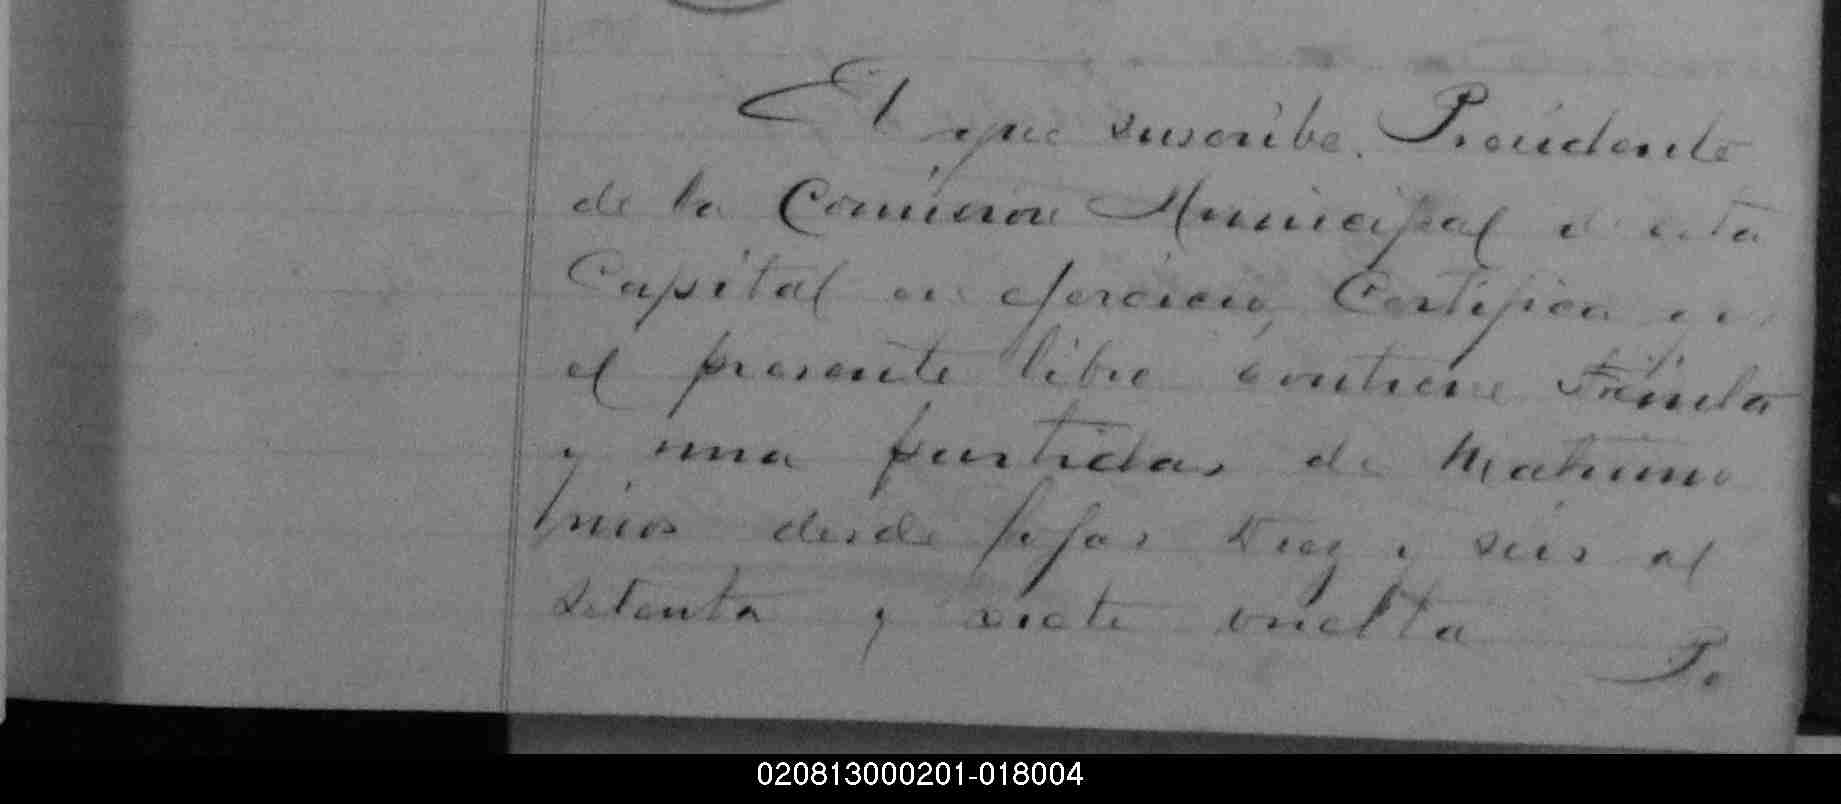 El que suscribe. Presidente
de la Comision Municipal de esta
Capital en ejercicio, Certifica que
el presente libro contiene treinta
y una partidas de Matrimo
nios desde fojas diez y seis al
setenta y siete vuelta
Po
020813000201-018004